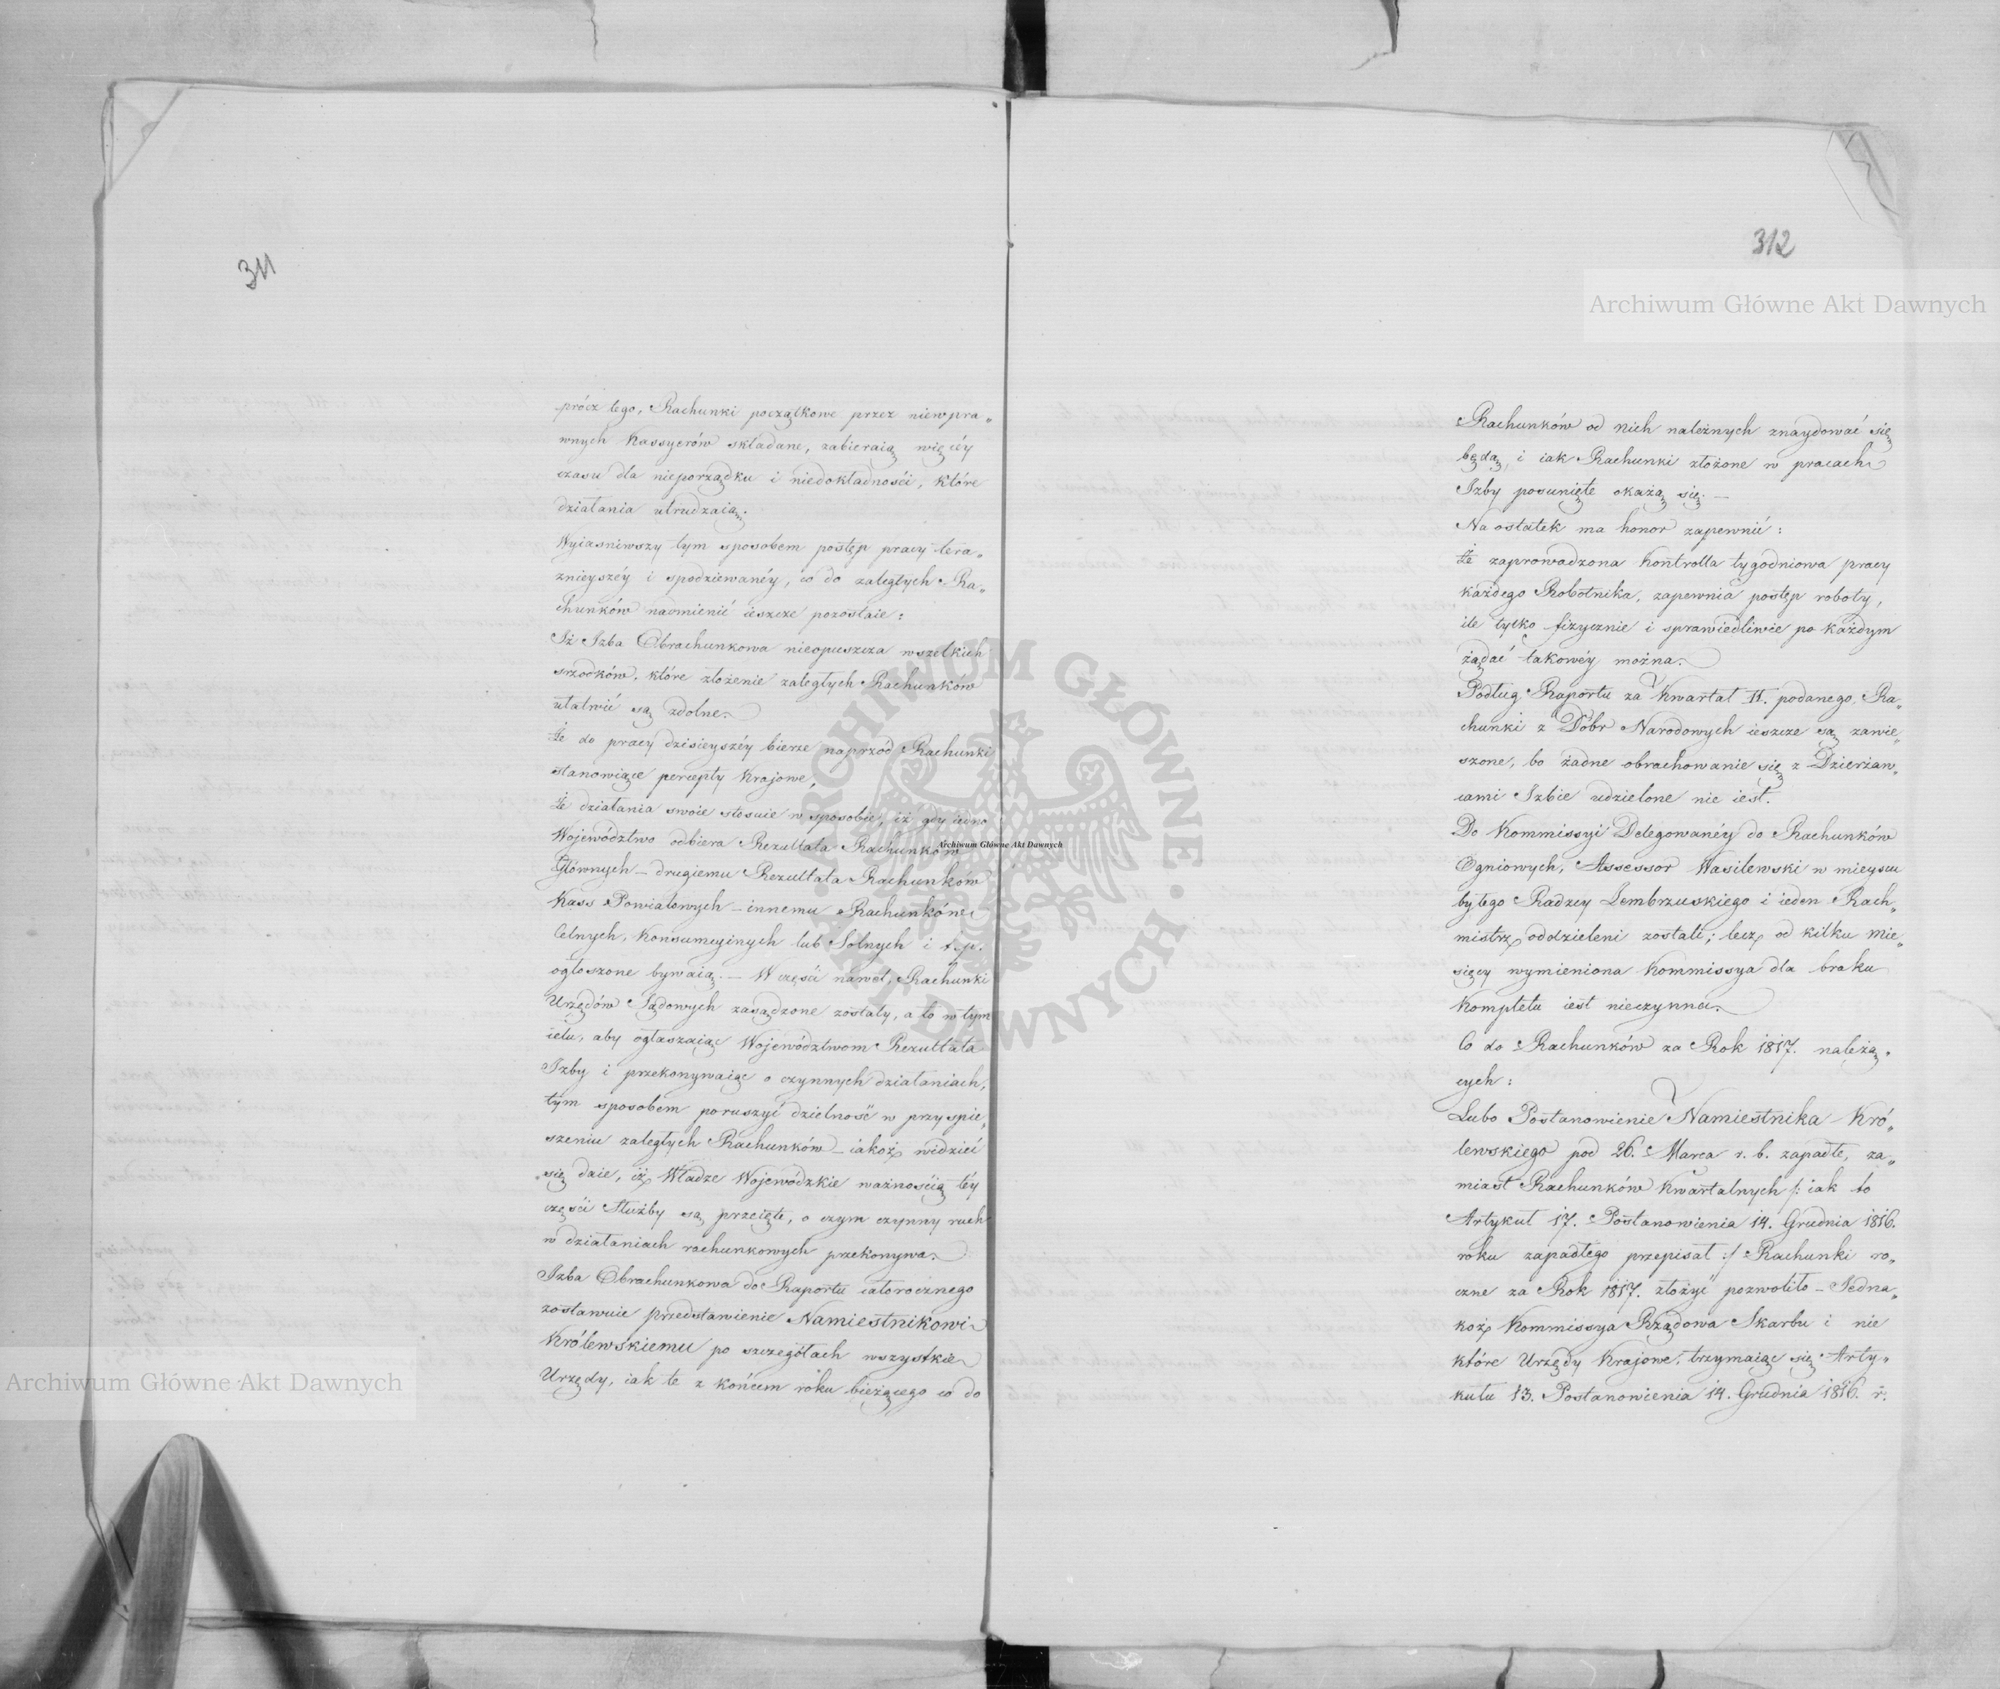 311
prócz tego, Rachunki początkowe przez niewpra„
wnych Kassyerów składane, zabieraią więcéy
czasu dla nieporządku i niedokładności, które
działania utrudzaią.
Wyiaśniwszy tym sposobem postęp pracy tera„
znieyszéy i spodziewanéy, co do zaległych Ra„
chunków nadmienić ieszcze pozostaie:
Iż Izba Obrachunkowa nieopuszcza wszelkich
srzodków, które złożenie zaległych Rachunków
ułatwić są zdolne.
Że do pracy dzisieyszéy bierze naprzód Rachunki
stanowiące percepty Krajowe,
Że działania swoie stosuie w sposobie, iż gdy iedno
Województwo odbiera Rezultata Rachunków
Głównych – drugiemu Rezultata Rachunków
Kass Powiatowych – innemu Rachunków
Celnych, Konsumcyinych lub Solnych i t.p.
ogłoszone bywaią. – W części nawet, Rachunki
Urzędów Sądowych zasądzone zostały, a to w tym
celu, aby ogłaszaiąc Województwom Rezultata
Izby i przekonywaiąc o czynnych działaniach,
tym sposobem poruszyć dzielność w przyspie„
szeniu zaległych Rachunków – iakoż widzieć
się daie, iż Władze Wojewódzkie ważnością téy
części Służby są przeięte, o czym czynny ruch
w działaniach rachunkowych przekonywa.
Izba Obrachunkowa do Raportu całorocznego
zostawuie przedstawienie Namiestnikowi
Królewskiemu po szczegółach wszystkie
Urzędy, iak te z końcem roku bieżącego co do
312
Rachunków od nich należnych znaydować się
będą, i iak Rachunki złożone w pracach
Izby posunięte okażą się. –
Na ostatek ma honor zapewnić:
Że zaprowadzona Kontrolla tygodniowa pracy
każdego Robotnika, zapewnia postęp roboty,
ile tylko fizycznie i sprawiedliwie po każdym
żądać takowéy można.
Podług Raportu za Kwartał II. podanego, Ra„
chunki z Dóbr Narodowych ieszcze są zawie„
szone, bo żadne obrachowanie się z Dzierżaw„
cami Izbie udzielone nie iest.
Do Kommissyi Delegowanéy do Rachunków
Ogniowych, Assessor Wasilewski w mieyscu
byłego Radzcy Dembrzuskiego i ieden Rach„
mistrz oddzieleni zostali; lecz od kilku mie„
sięcy wymieniona Kommissya dla braku
Kompletu iest nieczynna.
Co do Rachunków za Rok 1817. należą„
cych:
Lubo Postanowienie Namiestnika Kró„
lewskiego pod 26. Marca r. b. zapadłe, za„
miast Rachunków Kwartalnych /: iak to
Artykuł 17. Postanowienia 14. Grudnia 1816.
roku zapadłego przepisał :/ Rachunki ro„
czne za Rok 1817. złożyć pozwoliło – Jedna„
koż Kommissya Rządowa Skarbu i nie
które Urzędy Krajowe, trzymaiąc się Arty„
kułu 13. Postanowienia 14. Grudnia 1816. r.
Archiwum Główne Akt Dawnych
Archiwum Główne Akt Dawnych
Archiwum Główne Akt Dawnych
ARCHIWUM GŁÓWNE AKT DAWNYCH